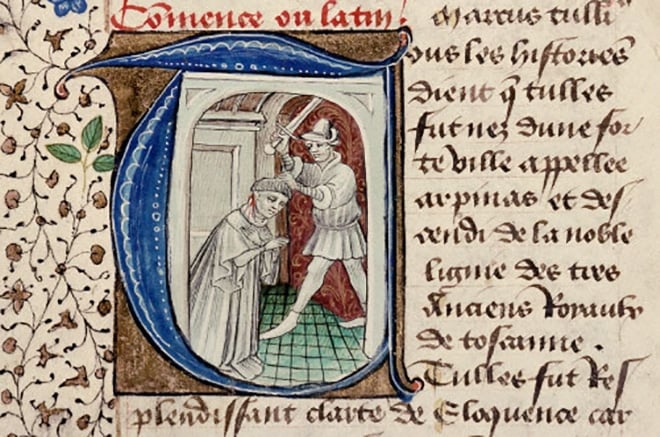 Comence ou latin. Marcus tulli⁹
ous les histories
dient q̄ tulles
fut nez dune for
te ville appellee
arpinas et des
cendi de la noble
lignie des tres
Anciens Royaulx
de toscanne .
Tulles fut Res
plendissant clarte de Eloquence car